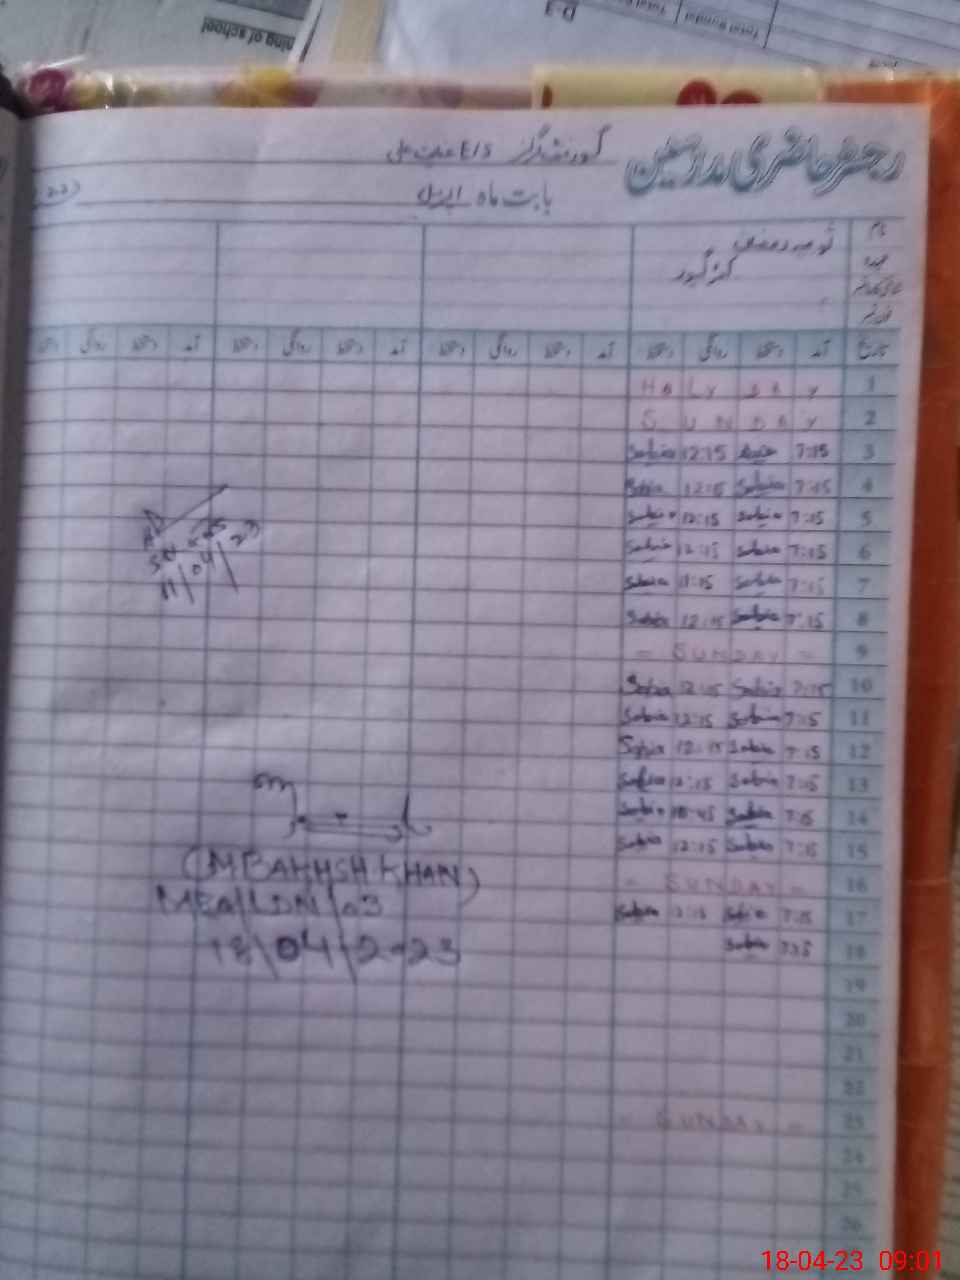 ning of school
D-3
رجسٹر حاضری مدرسین گورنمنٹ گرلز E/S
بابت ماہ اپریل
نام
عہدہ
تاریخ آمد دستخط روانگی دستخط آمد دستخط روانگی دستخط آمد دستخط روانگی دستخط آمد دستخط روانگی
1 HOLY DAY
2 SUNDAY
3 7:15 12:15 Sabia
4 7:15 Sabia 12:15 Sabia
5 7:15 Sabia 12:15 Sabia
6 7:15 Sabia 12:15 Sabia
7 7:15 Sabia 11:15 Sabia
8 7:15 Sabia 12:15 Sabia
9 - SUNDAY -
10 7:15 Sabia 12:15 Sabia
11 7:15 Sabia 12:15 Sabia
12 7:15 Sabia 12:15 Sabia
13 7:15 Sabia 12:15 Sabia
14 7:15 Sabia 10:45 Sabia
15 7:15 Sabia 12:15 Sabia
16 - SUNDAY -
17 7:15 Sabia 12:15 Sabia
18 7:15 Sabia
19
20
21
22
23 - SUNDAY -
24
25
26
11/04/23
(M BAKHSH KHAN)
MEA/LDN/03
18/04/2023
18-04-23 09:01